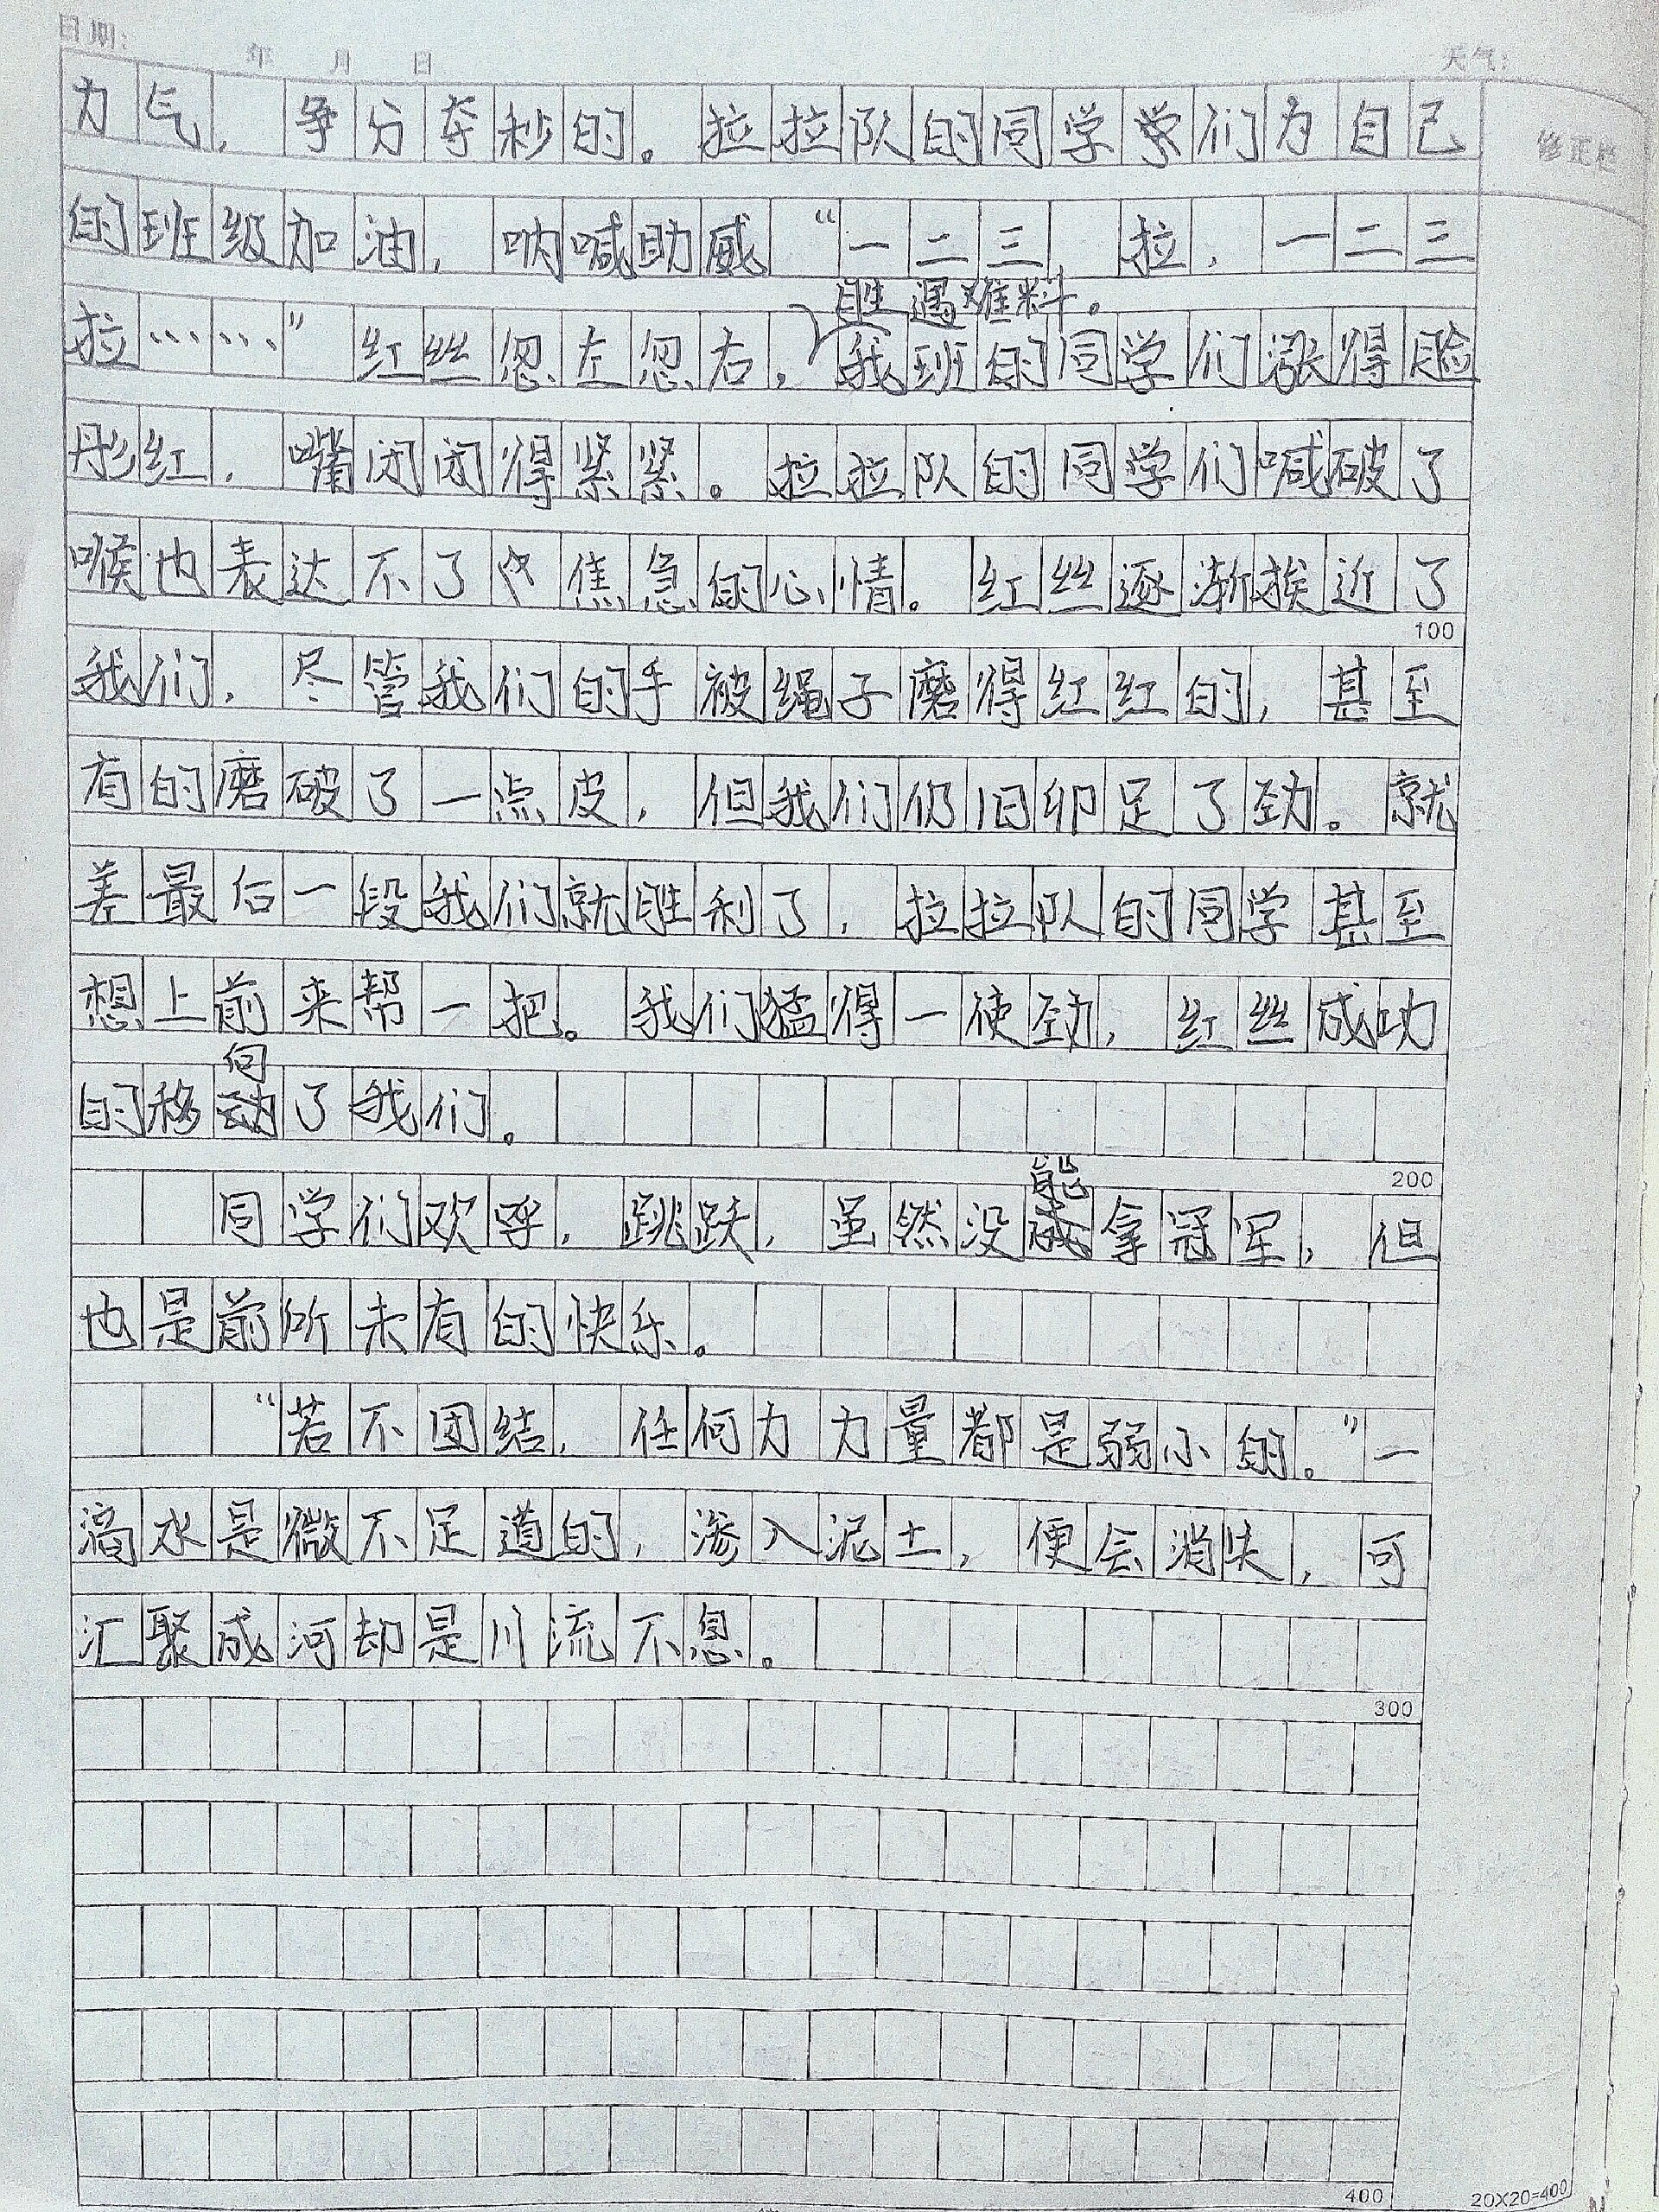 日期： 年 月 日 天气：
力气，争分夺秒的。拉拉队的同学学们为自己
修正栏
的班级加油，呐喊助威“一二三，拉，一二三
胜遇难料。
拉……”红丝忽左忽右，我班的同学们涨得脸
彤红，嘴闭闭得紧紧。拉拉队的同学们喊破了
喉也表达不了焦急的心情。红丝逐渐挨近了
100
我们，尽管我们的手被绳子磨得红红的，甚至
有的磨破了一点皮，但我们仍旧卯足了劲。就
差最后一段我们就胜利了，拉拉队的同学甚至
想上前来帮一把。我们猛得一使劲，红丝成功
向
的移动了我们。
200
能
同学们欢呼，跳跃，虽然没成拿冠军，但
也是前所未有的快乐。
“若不团结，任何力力量都是弱小的。”一
滴水是微不足道的，渗入泥土，便会消失，可
汇聚成河却是川流不息。
300
400
20X20=400